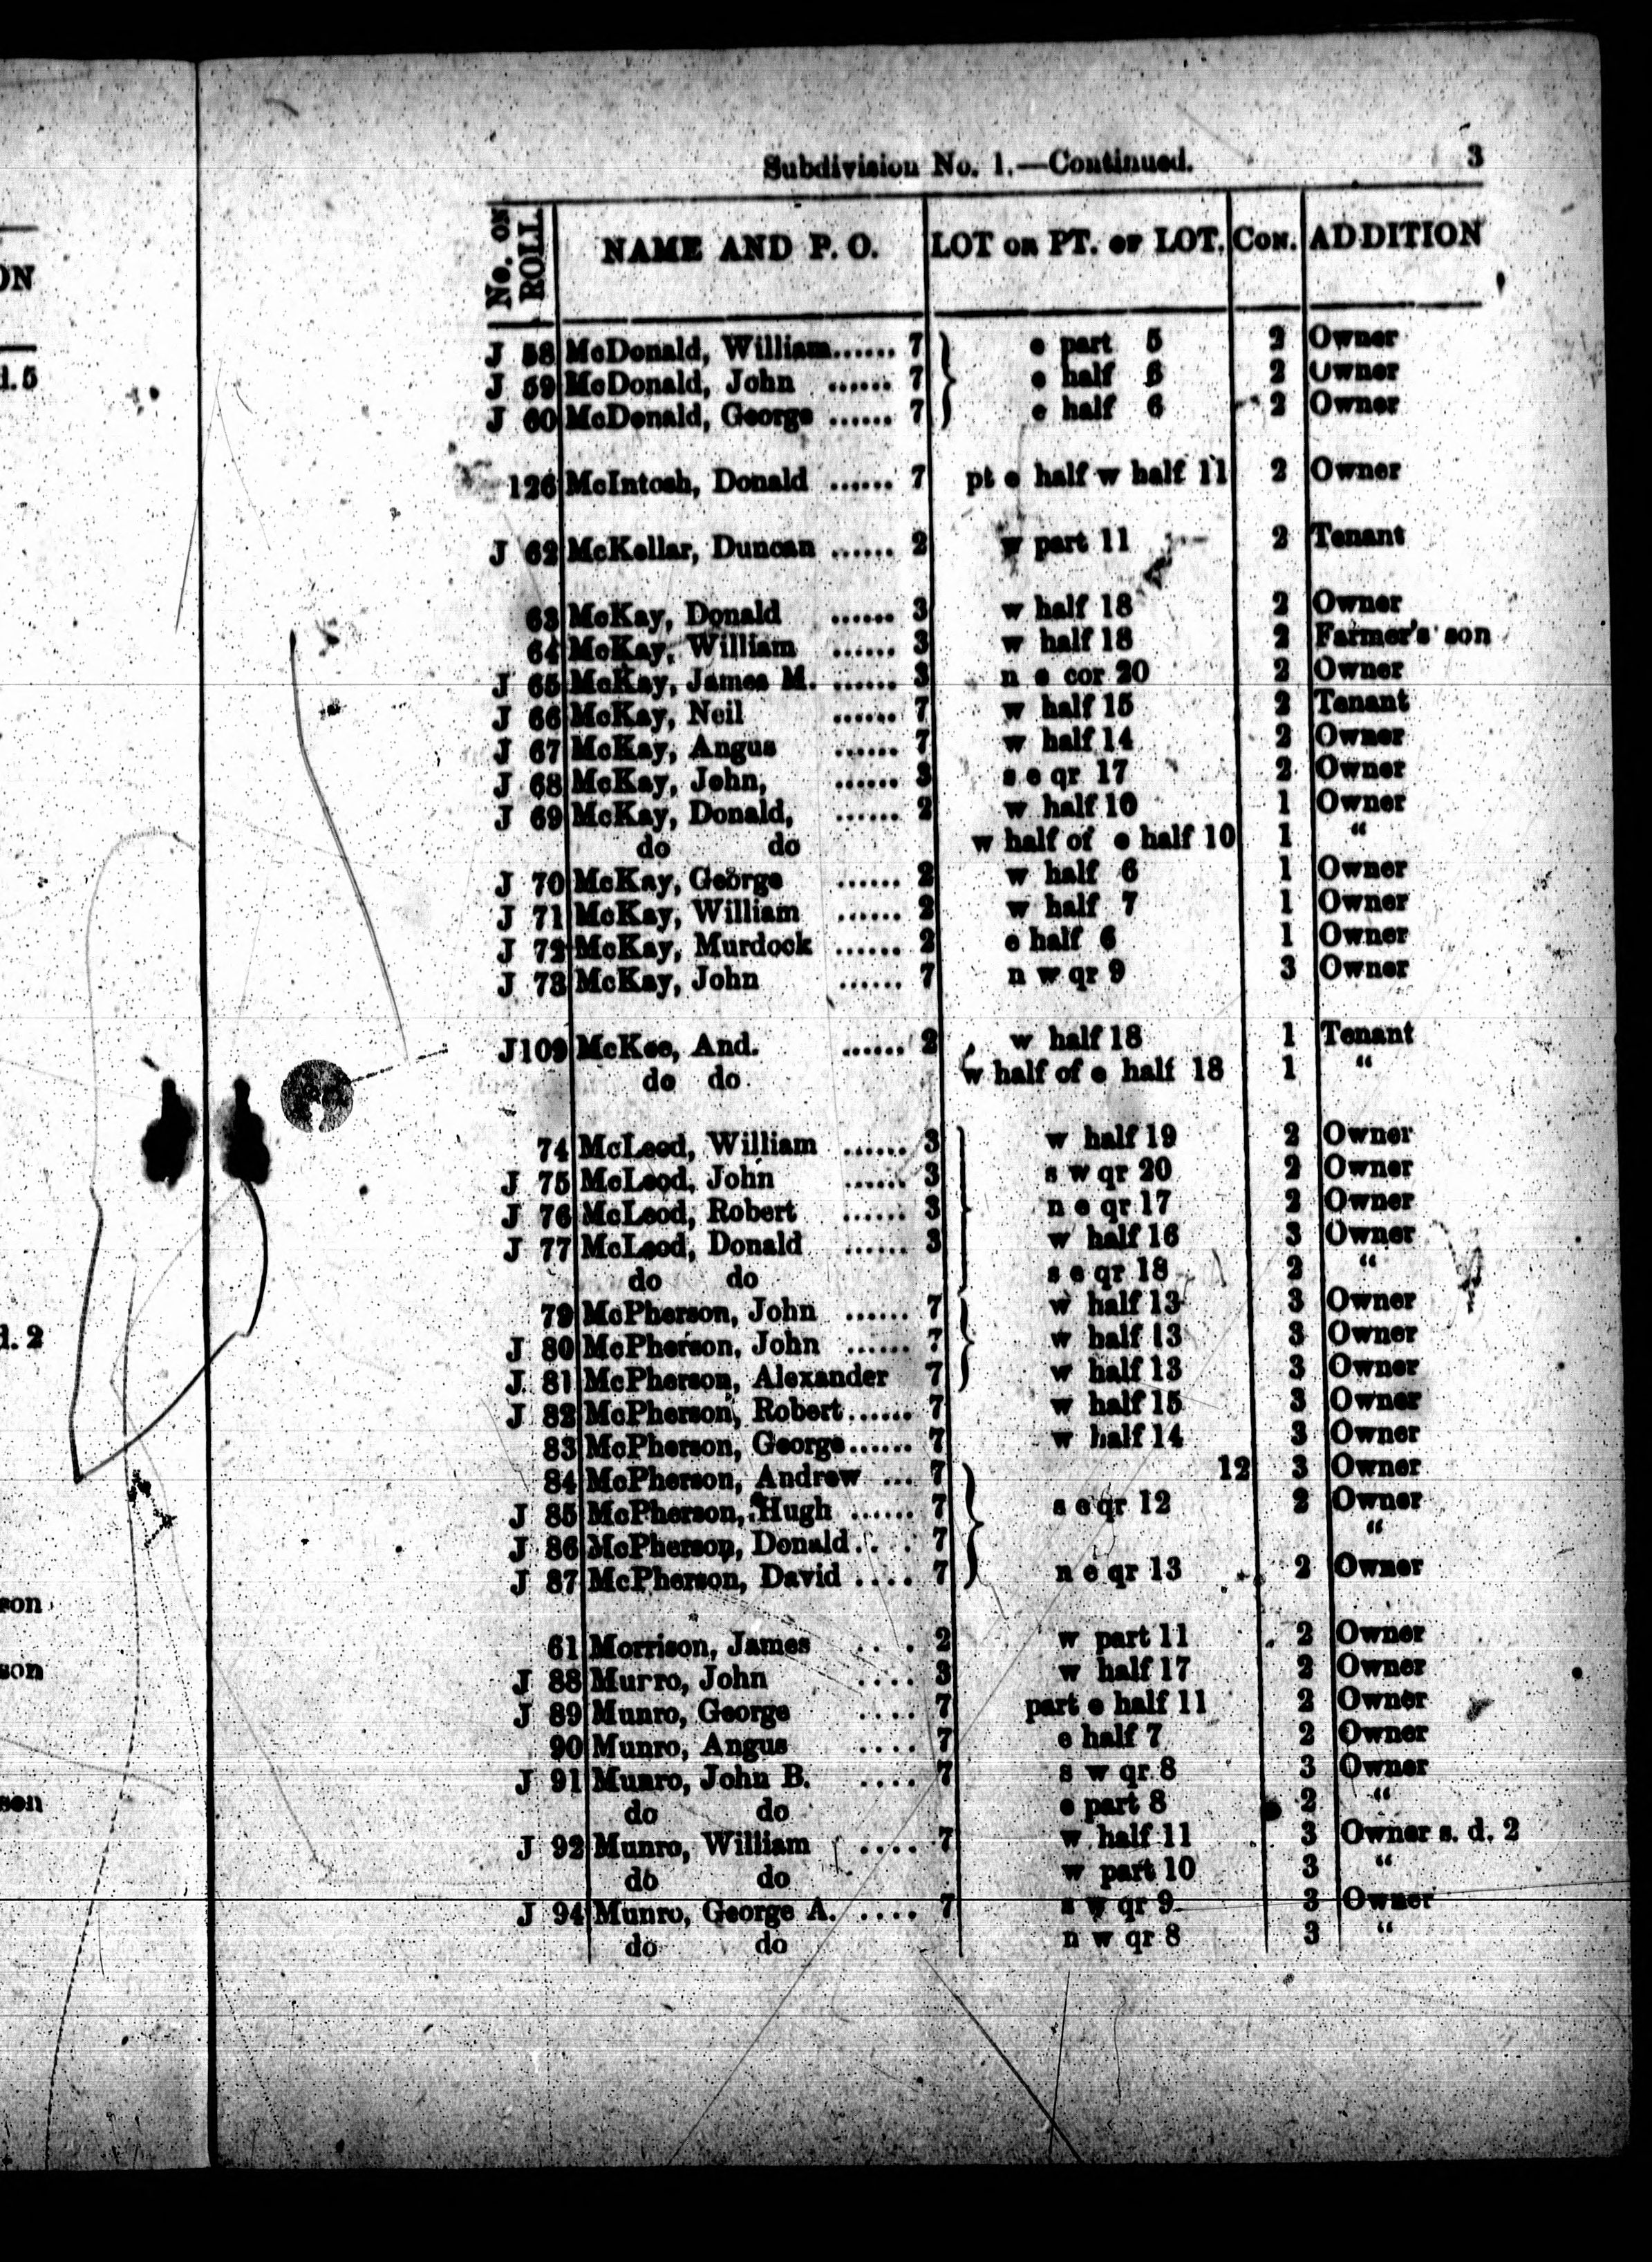 Subdivision No. 1.—Continued. 3
No. on ROLL. NAME AND P. O. LOT or PT. of LOT. Con. ADDITION
J 58 McDonald, William...... 7 e part 5 2 Owner
J 59 McDonald, John ...... 7 e half 6 2 Owner
J 60 McDonald, George ...... 7 e half 6 2 Owner
126 McIntosh, Donald ...... 7 pt e half w half 11 2 Owner
J 62 McKellar, Duncan ...... 2 w part 11 2 Tenant
63 McKay, Donald ...... 3 w half 18 2 Owner
64 McKay, William ...... 3 w half 18 2 Farmer's son
J 65 McKay, James M. ...... 3 n e cor 20 2 Owner
J 66 McKay, Neil ...... 7 w half 15 2 Tenant
J 67 McKay, Angus ...... 7 w half 14 2 Owner
J 68 McKay, John, ...... 3 s e qr 17 2 Owner
J 69 McKay, Donald, ...... 2 w half 10 1 Owner
do do w half of e half 10 1 “
J 70 McKay, George ...... 2 w half 6 1 Owner
J 71 McKay, William ...... 2 w half 7 1 Owner
J 72 McKay, Murdock ...... 2 e half 6 1 Owner
J 73 McKay, John ...... 7 n w qr 9 3 Owner
J109 McKee, And. ...... 2 w half 18 1 Tenant
do do w half of e half 18 1 “
74 McLeod, William ...... 3 w half 19 2 Owner
J 75 McLeod, John ...... 3 s w qr 20 2 Owner
J 76 McLeod, Robert ...... 3 n e qr 17 2 Owner
J 77 McLeod, Donald ...... 3 w half 16 3 Owner
do do s e qr 18 2 “
79 McPherson, John ...... 7 w half 13 3 Owner
J 80 McPherson, John ...... 7 w half 13 3 Owner
J 81 McPherson, Alexander 7 w half 13 3 Owner
J 82 McPherson, Robert...... 7 w half 15 3 Owner
83 McPherson, George...... 7 w half 14 3 Owner
84 McPherson, Andrew ... 7 12 3 Owner
J 85 McPherson, Hugh ...... 7 s e qr 12 2 Owner
J 86 McPherson, Donald.. . 7 “
J 87 McPherson, David .... 7 n e qr 13 2 Owner
61 Morrison, James .... 2 w part 11 2 Owner
J 88 Murro, John .... 3 w half 17 2 Owner
J 89 Munro, George .... 7 part e half 11 2 Owner
90 Munro, Angus .... 7 e half 7 2 Owner
J 91 Munro, John B. .... 7 s w qr 8 3 Owner
do do e part 8 2 “
J 92 Munro, William .... 7 w half 11 3 Owner s. d. 2
do do w part 10 3 “
J 94 Munro, George A. .... 7 s w qr 9 3 Owner
do do n w qr 8 3 “
ON
d. 5
d. 2
son
son
son